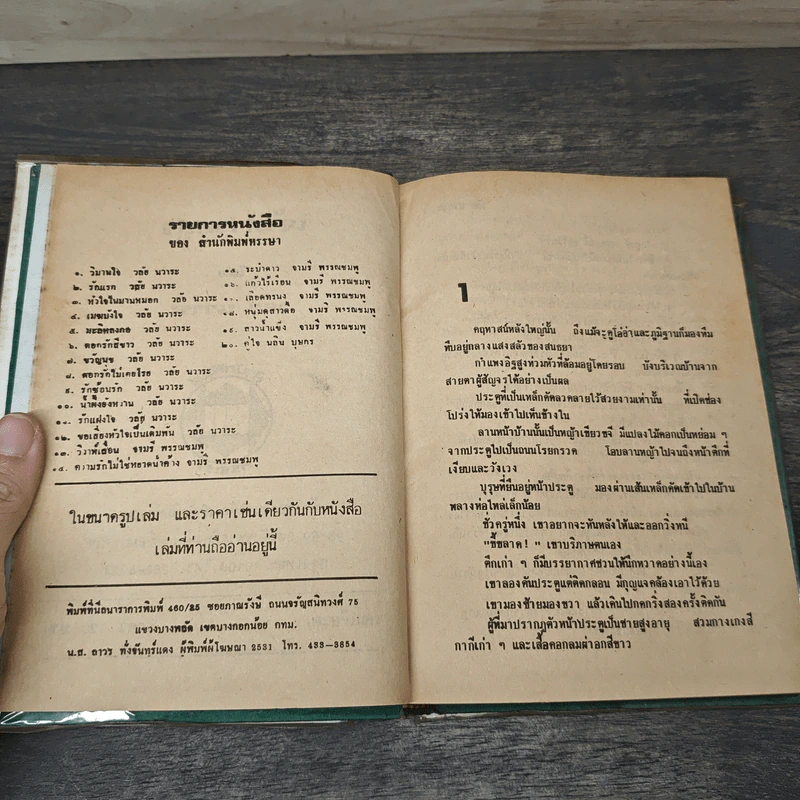 รายการหนังสือ
ของ สำนักพิมพ์หรรษา
๑. วิมานใจ วลัย นวาระ
๒. รักแรก วลัย นวาระ
๓. หัวใจในม่านหมอก วลัย นวาระ
๔. เมฆบังใจ วลัย นวาระ
๕. มะลิหลงกอ วลัย นวาระ
๖. ดอกรักสีขาว วลัย นวาระ
๗. ขวัญนุช วลัย นวาระ
๘. ดอกรักไม่เคยโรย วลัย นวาระ
๙. รักซ้อนรัก วลัย นวาระ
๑๐. น้ำผึ้งยังหวาน วลัย นวาระ
๑๑. รักแฝงใจ วลัย นวาระ
๑๒. ขอเสียงหัวใจเป็นเดิมพัน วลัย นวาระ
๑๓. วิวาห์เถื่อน จามรี พรรณชมพู
๑๔. ความรักไม่ใช่หยาดน้ำค้าง จามรี พรรณชมพู
๑๕. ระบำดาว จามรี พรรณชมพู
๑๖. แก้วไร้เรือน จามรี พรรณชมพู
๑๗. เลือดทรนง จามรี พรรณชมพู
๑๘. หนุ่มดุสาวดื้อ จามรี พรรณชมพู
๑๙. สาวน้ำแข็ง จามรี พรรณชมพู
๒๐. คู่ใจ นลิน บุษกร
ในขนาดรูปเล่ม และราคาเช่นเดียวกันกับหนังสือ
เล่มที่ท่านถืออ่านอยู่นี้
พิมพ์ที่มีธนาราการพิมพ์ 460/25 ซอยภาณุรังษี ถนนจรัญสนิทวงศ์ 75
แขวงบางพลัด เขตบางกอกน้อย กทม.
น.ส. ถาวร ทั่งจันทร์แดง ผู้พิมพ์ผู้โฆษณา 2531 โทร. 433-3654
1
คฤหาสน์หลังใหญ่นั้น ถึงแม้จะดูโอ่อ่าและภูมิฐานก็มองทึม
ทึบอยู่กลางแสงสลัวของสนธยา
กำแพงอิฐสูงท่วมหัวที่ล้อมอยู่โดยรอบ บังบริเวณบ้านจาก
สายตาผู้สัญจรได้อย่างเป็นผล
ประตูที่เป็นเหล็กดัดลวดลายไว้สวยงามเท่านั้น ที่เปิดช่อง
โปร่งให้มองเข้าไปเห็นข้างใน
ลานหน้าบ้านนั้นเป็นหญ้าเขียวขจี มีแปลงไม้ดอกเป็นหย่อม ๆ
จากประตูไปเป็นถนนโรยกรวด โอบลานหญ้าไปจนถึงหน้าตึกที่
เงียบและวังเวง
บุรุษที่ยืนอยู่หน้าประตู มองผ่านเส้นเหล็กดัดเข้าไปในบ้าน
พลางห่อไหล่เล็กน้อย
ชั่วครู่หนึ่ง เขาอยากจะหันหลังให้และออกวิ่งหนี
"ขี้ขลาด! เขาบริภาษตนเอง
ตึกเก่า ๆ ก็มีบรรยากาศชวนให้นึกหวาดอย่างนี้เอง
เขาลองดันประตูแต่ติดกลอน มีกุญแจคล้องเอาไว้ด้วย
เขามองซ้ายมองขวา แล้วเดินไปกดกริ่งสองครั้งติดกัน
ผู้ที่มาปรากฏตัวหน้าประตูเป็นชายสูงอายุ สวมกางเกงสี
กากีเก่า ๆ และเสื้อคอกลมผ่าอกสีขาว